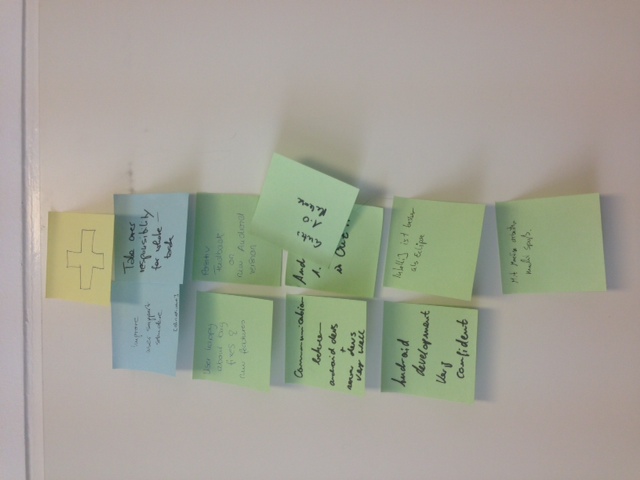 Improve
user support
Take over
responsibility
for whole
task
User happy
about bug
fixes &
new features
Positiv
Feedback
on
new Android
version
Communication
between
android devs
+
devs
very well
And
1.
is Out
Gutes
1.0
Release
Android
development
Very
confident
IntelliJ ist besser
als Eclipse
Mit
macht Spaß.